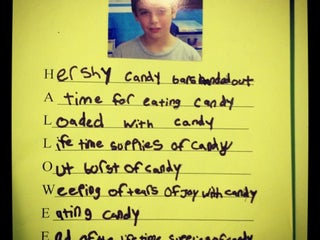 Hershy candy bars handed out
A time for eating candy
Loaded with candy
Life time supplies of candy
Out burst of candy
Weeping of tears of joy with candy
Eating candy
End of the life time supplies of candy